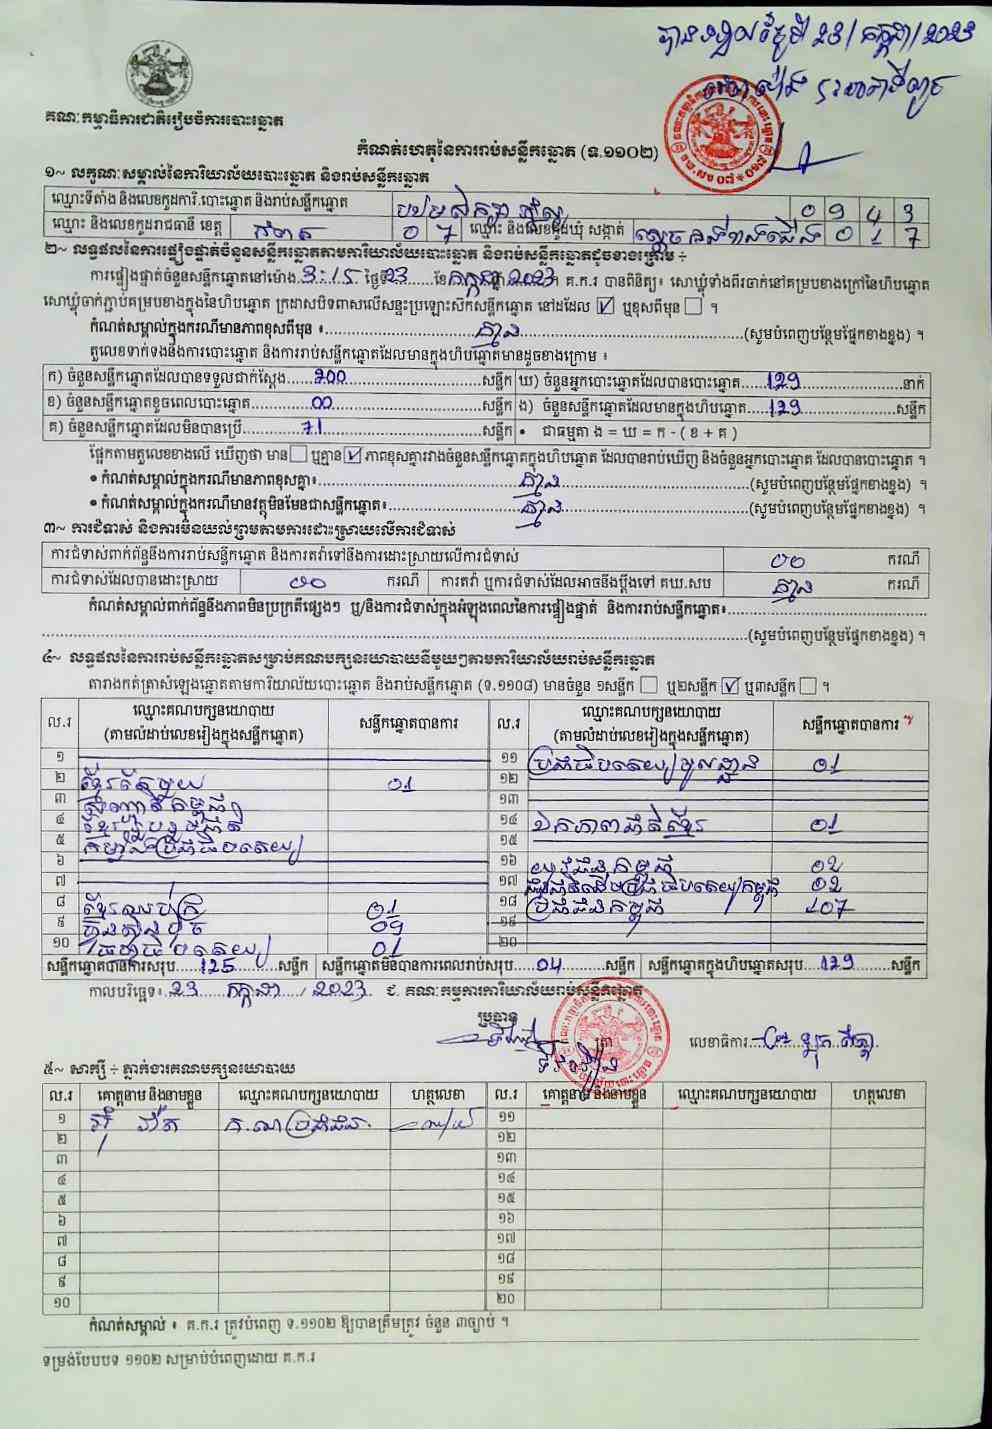 បានទទួលថ្ងៃទី 23/ កក្កដា/ 2023
គណៈកម្មាធិការជាតិរៀបចំការបោះឆ្នោត
កំណត់ហេតុនៃការរាប់សន្លឹកឆ្នោត (ទ.១១០២)
១~ លក្ខណៈសម្គាល់នៃការិយាល័យបោះឆ្នោត និងរាប់សន្លឹកឆ្នោត
ឈ្មោះទីតាំង និងលេខកូដការិ.បោះឆ្នោត និងរាប់សន្លឹកឆ្នោត 0 9 4 3
ឈ្មោះ និងលេខកូដរាជធានី ខេត្ត កំពត 0 7 ឈ្មោះ និងលេខកូដឃុំ សង្កាត់ 0 1 7
២~ លទ្ធផលនៃការផ្ទៀងផ្ទាត់ចំនួនសន្លឹកឆ្នោតតាមការិយាល័យបោះឆ្នោត និងរាប់សន្លឹកឆ្នោតដូចខាងក្រោម ÷
ការផ្ទៀងផ្ទាត់ចំនួនសន្លឹកឆ្នោតនៅម៉ោង 3:15 ថ្ងៃទី 23 ខែ កក្កដា 2023 ។ គ.ក.រ បានពិនិត្យ៖ សោឃ្លុំទាំងពីរចាក់នៅគម្របខាងក្រៅនៃហិបឆ្នោត
សោឃ្លុំចាក់ភ្ជាប់គម្របខាងក្នុងនៃហិបឆ្នោត ក្រដាសបិទពាសលើសន្ទះប្រឡោះសឹកសន្លឹកឆ្នោត នៅដដែល ☑ ឬខុសពីមុន ☐ ។
កំណត់សម្គាល់ក្នុងករណីមានភាពខុសពីមុន ៖ គ្មាន (សូមបំពេញបន្ថែមផ្នែកខាងខ្នង) ។
តួលេខទាក់ទងនឹងការបោះឆ្នោត និងការរាប់សន្លឹកឆ្នោតដែលមានក្នុងហិបឆ្នោតមានដូចខាងក្រោម ៖
ក) ចំនួនសន្លឹកឆ្នោតដែលបានទទួលជាក់ស្តែង 200 សន្លឹក ឃ) ចំនួនអ្នកបោះឆ្នោតដែលបានបោះឆ្នោត 129 នាក់
ខ) ចំនួនសន្លឹកឆ្នោតខូចពេលបោះឆ្នោត 00 សន្លឹក ង) ចំនួនសន្លឹកឆ្នោតដែលមានក្នុងហិបឆ្នោត 129 សន្លឹក
គ) ចំនួនសន្លឹកឆ្នោតដែលមិនបានប្រើ 71 សន្លឹក • ជាធម្មតា ង = ឃ = ក - ( ខ + គ )
ផ្អែកតាមតួលេខខាងលើ ឃើញថា មាន ☐ ឬគ្មាន ☑ ភាពខុសគ្នារវាងចំនួនសន្លឹកឆ្នោតក្នុងហិបឆ្នោត ដែលបានរាប់ឃើញ និងចំនួនអ្នកបោះឆ្នោត ដែលបានបោះឆ្នោត ។
• កំណត់សម្គាល់ក្នុងករណីមានភាពខុសគ្នា៖ គ្មាន (សូមបំពេញបន្ថែមផ្នែកខាងខ្នង) ។
• កំណត់សម្គាល់ក្នុងករណីមានវត្ថុមិនមែនជាសន្លឹកឆ្នោត៖ គ្មាន (សូមបំពេញបន្ថែមផ្នែកខាងខ្នង) ។
៣~ ការជំទាស់ និងការមិនយល់ព្រមតាមការដោះស្រាយលើការជំទាស់
ការជំទាស់ពាក់ព័ន្ធនឹងការរាប់សន្លឹកឆ្នោត និងការតវ៉ាទៅនឹងការដោះស្រាយលើការជំទាស់ 00 ករណី
ការជំទាស់ដែលបានដោះស្រាយ 00 ករណី ការតវ៉ា ឬការជំទាស់ដែលអាចនឹងប្តឹងទៅ គឃ.សប គ្មាន ករណី
កំណត់សម្គាល់ពាក់ព័ន្ធនឹងភាពមិនប្រក្រតីផ្សេងៗ ឬ/និងការជំទាស់ក្នុងអំឡុងពេលនៃការផ្ទៀងផ្ទាត់ និងការរាប់សន្លឹកឆ្នោត៖
(សូមបំពេញបន្ថែមផ្នែកខាងខ្នង) ។
៤~ លទ្ធផលនៃការរាប់សន្លឹកឆ្នោតសម្រាប់គណបក្សនយោបាយនីមួយៗតាមការិយាល័យរាប់សន្លឹកឆ្នោត
តារាងកត់ត្រាសំឡេងឆ្នោតតាមការិយាល័យបោះឆ្នោត និងរាប់សន្លឹកឆ្នោត (ទ.១១០៨) មានចំនួន ១សន្លឹក ☐ ឬ២សន្លឹក ☑ ឬ៣សន្លឹក ☐ ។
ល.រ ឈ្មោះគណបក្សនយោបាយ សន្លឹកឆ្នោតបានការ ល.រ ឈ្មោះគណបក្សនយោបាយ សន្លឹកឆ្នោតបានការ
(តាមលំដាប់លេខរៀងក្នុងសន្លឹកឆ្នោត) (តាមលំដាប់លេខរៀងក្នុងសន្លឹកឆ្នោត)
១ ១១ ប្រជាធិបតេយ្យមូលដ្ឋាន 01
២ ខ្មែរតែមួយ 01 ១២
៣ ១៣
៤ ១៤ ឯកភាពជាតិខ្មែរ 01
៥ កម្លាំងប្រជាធិបតេយ្យ ១៥
៦ ១៦ យុវជនកម្ពុជា 02
៧ ១៧ 02
៨ 01 ១៨ ប្រជាជនកម្ពុជា 107
៩ ហ៊្វុនស៊ិនប៉ិច 09 ១៩
១០ ធម្មាធិបតេយ្យ 01 ២០
សន្លឹកឆ្នោតបានការសរុប 125 សន្លឹក សន្លឹកឆ្នោតមិនបានការពេលរាប់សរុប 04 សន្លឹក សន្លឹកឆ្នោតក្នុងហិបឆ្នោតសរុប 129 សន្លឹក
កាលបរិច្ឆេទ៖ 23 កក្កដា / 2023 ជ. គណៈកម្មការការិយាល័យរាប់សន្លឹកឆ្នោត
ប្រធាន
ត្រា លេខាធិការ
៥~ សាក្សី ÷ ភ្នាក់ងារគណបក្សនយោបាយ
ល.រ គោត្តនាម និងនាមខ្លួន ឈ្មោះគណបក្សនយោបាយ ហត្ថលេខា ល.រ គោត្តនាម និងនាមខ្លួន ឈ្មោះគណបក្សនយោបាយ ហត្ថលេខា
១ ១១
២ ១២
៣ ១៣
៤ ១៤
៥ ១៥
៦ ១៦
៧ ១៧
៨ ១៨
៩ ១៩
១០ ២០
កំណត់សម្គាល់ ៖ គ.ក.រ ត្រូវបំពេញ ទ.១១០២ ឱ្យបានត្រឹមត្រូវ ចំនួន ៣ច្បាប់ ។
ទម្រង់បែបបទ ១១០២ សម្រាប់បំពេញដោយ គ.ក.រ